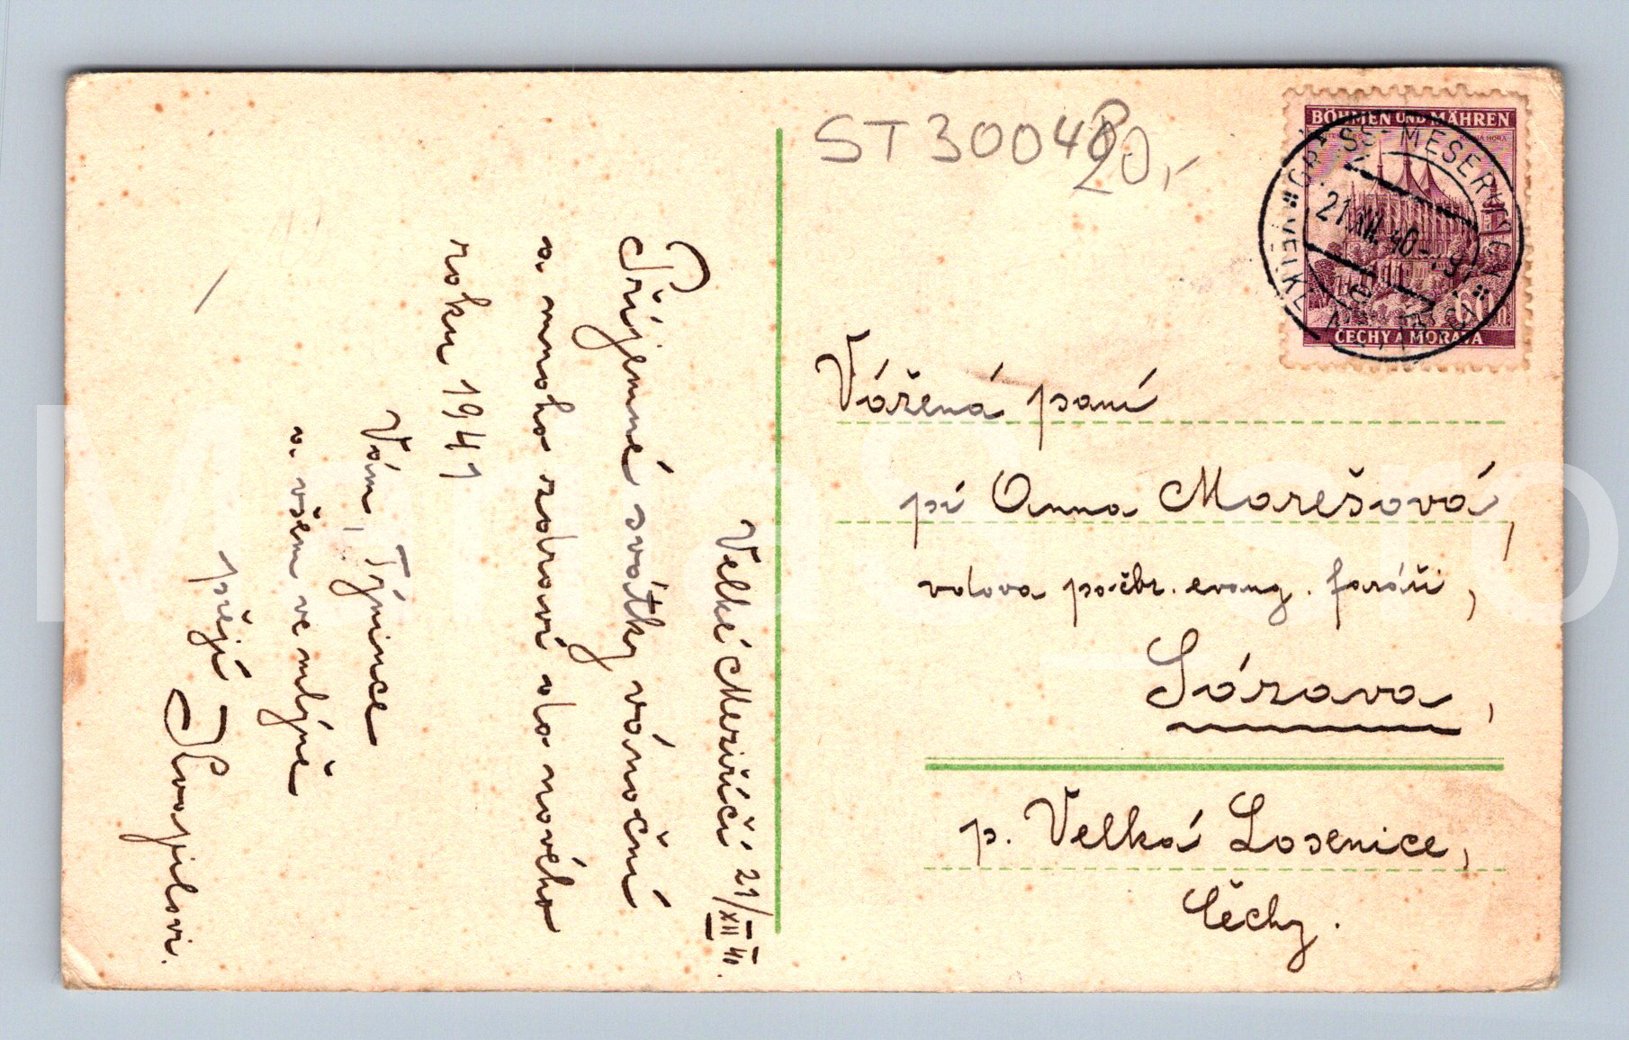 ST30048
20,-
BÖHMEN UND MÄHREN
ČECHY A MORAVA
GROSS-MESERITSCH
21.XII.40
VELKÉ
Velké Meziříčí 21/XII 40.
Příjemné svátky vánoční
a mnoho zdraví do nového
roku 1941
Vám, Týnince
a všem ve mlýně
přejí
Vážená paní
pí Anna Marešová,
vdova po čbr. evang. faráři,
Sázava,
p. Velká Losenice,
Čechy.